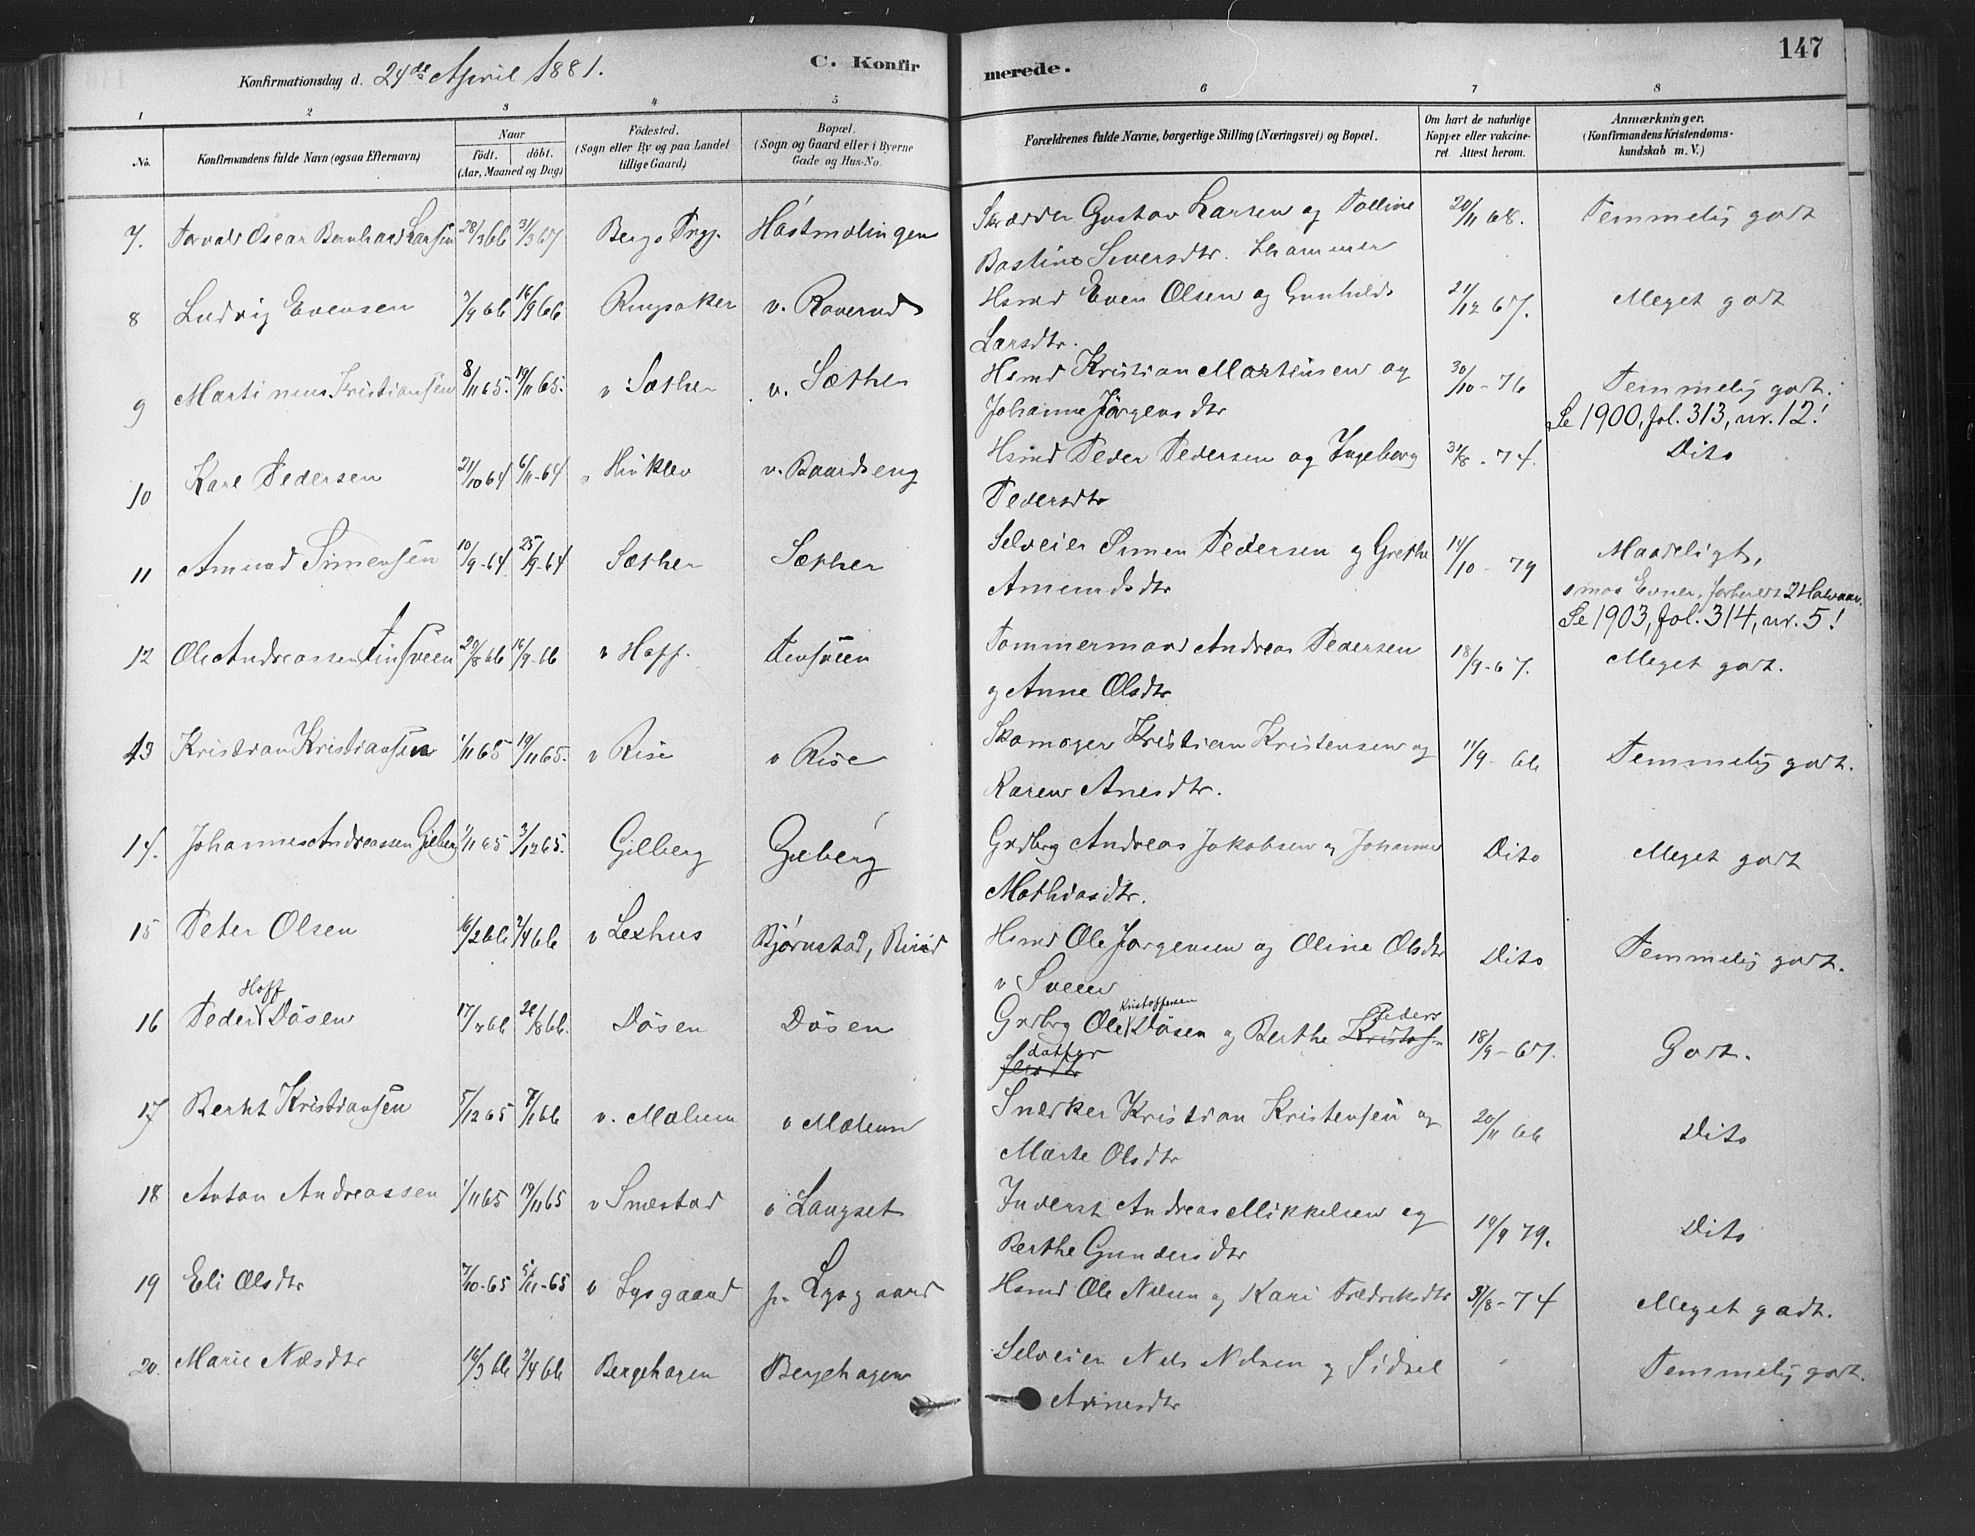 147
Konfirmationsdag d. 24de April 1881. C. Konfirmerede.
1 2 3 4 5 6 7 8
No. Konfirmandens fulde Navn (ogsaa Efternavn) Naar født. døbt. (Aar, Maaned og Dag) Fødested. (Sogn eller By og paa Landet tillige Gaard) Bopæl. (Sogn og Gaard eller i Byerne Gade og Hus-No. Forældrenes fulde Navne, borgerlige Stilling (Næringsvei) og Bopæl. Om havt de naturlige Kopper eller vakcineret Attest herom. Anmærkninger. (Konfirmandens Kristendomskundskab m. V.)
7. Torvald Oscar Bernhard Larsen 28/3 66 31/3 67 Bergs Præg. Hastmolingen Skrædder Gustav Larsen og Polline 20/11 68. Temmelig godt
Bastine Siversdtr. Lhammer
8 Ludvig Evensen 3/9 66 16/9 66 Ringsaker v. Roverud Hsmd Even Olsen og Gunhild 21/12 67. Meget godt
Larsdtr.
9 Martinus Kristiansen 8/11 65. 19/11 65. v Sæther v. Sæther Hsmd Kristian Martinsen og 30/10 - 76 Temmelig godt.
Johanne Jørgensdtr Se 1900, fol. 313, nr. 12!
10 Karl Pedersen 21/10 64 6/11 - 64 v Hinklev v. Baardseng Hsmd Peder Pedersen og Ingeborg 31/8 - 74. Dito
Pedersdtr
11 Amund Simensen 10/9 - 64 25/9 - 64 Sæther Sæther Selveier Simen Pedersen og Grethe 14/10 - 79 Maadeligt,
Amundsdtr smaa Evner, forberedt 2 Halvaar.
Se 1903, fol. 314, nr. 5!
12 Ole Andreassen Tinsveen 20/8 66 16/9 - 66 v Hoff. Tinsveen Tømmermand Andreas Pedersen 18/9 - 67. Meget godt.
og Anne Olsdtr
13 Kristian Kristiansen 1/11 65 19/11 65. v Rise v Rise Skomager Kristian Kristensen og 11/9 - 66 Temmelig godt.
Karen Anesdtr.
14. Johannes Andreassen Gilberg 1/11 65 3/12 65. Gilberg Gilberg Grdbrg Andreas Jakobsen og Johanne Dito Meget godt
Mathiasdtr.
15 Peter Olsen 16/2 66 2/4 66 v Lexhus Bjørnstad, Biiri Hsmd Ole Jørgensen og Oline Olsdtr Dito Temmelig godt.
v Sveen
16 Peder Hoff Døsen 17/7 66 26/8 66. Døsen Døsen Grdbrg Ole Kristoffersen Døsen og Berthe Kristof- Peders 18/9 - 67. Godt.
fersdtr datter
17 Bernt Kristiansen 5/12 65 7/1 66 v. Mælum v Mælum Snedker Kristian Kristensen og 20/11 66 Dito
Marte Olsdtr
18 Anton Andreassen 1/11 65 19/11 65 v Smestad v Langset Inderst Andreas Mikkelsen og 19/9 79. Dito
Berthe Gundersdtr
19 Eli Olsdtr 7/10 - 65 5/11 - 65 v Lysgaard p. Lysgaard Hsmd Ole Nilsen og Kari Fredriksdtr 31/8 - 74 Meget godt.
20. Marie Nilsdtr 16/3 66 2/4 66 Bergehagen Bergehagen Selveier Nils Nilsen og Sidsel Temmelig godt.
Arnesdtr